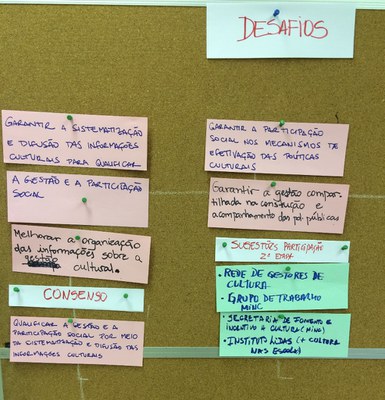 DESAFIOS
GARANTIR A SISTEMATIZAÇÃO
E DIFUSÃO DAS INFORMAÇÕES
CULTURAIS PARA QUALIFICAR
A GESTÃO E A PARTICIPAÇÃO
SOCIAL
Melhorar a organização
das informações sobre a
gestão cultural.
CONSENSO
QUALIFICAR A GESTÃO E A
PARTICIPAÇÃO SOCIAL POR MEIO
DA SISTEMATIZAÇÃO E DIFUSÃO DAS
INFORMAÇÕES CULTURAIS
GARANTIR A PARTICIPAÇÃO
SOCIAL NOS MECANISMOS DE
EFETIVAÇÃO DAS POLÍTICAS
CULTURAIS
Garantir a gestão compar-
tilhada na construção e
acompanhamento das pol. públicas
SUGESTÕES PARTICIPAÇÃO
2ª ETAPA
• REDE DE GESTORES DE
CULTURA
• GRUPO DE TRABALHO
MINC
• SECRETARIA DE FOMENTO E
INCENTIVO A CULTURA (MINC)
• INSTITUT LIDAS (+ CULTURA
NAS ESCOLA)